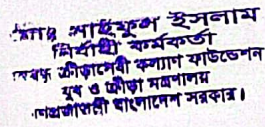 সাইফুল ইসলাম
নির্বাহী কর্মকর্তা
ক্রীড়াসেবী কল্যাণ ফাউন্ডেশন
যুব ও ক্রীড়া মন্ত্রণালয়
গণপ্রজাতন্ত্রী বাংলাদেশ সরকার।